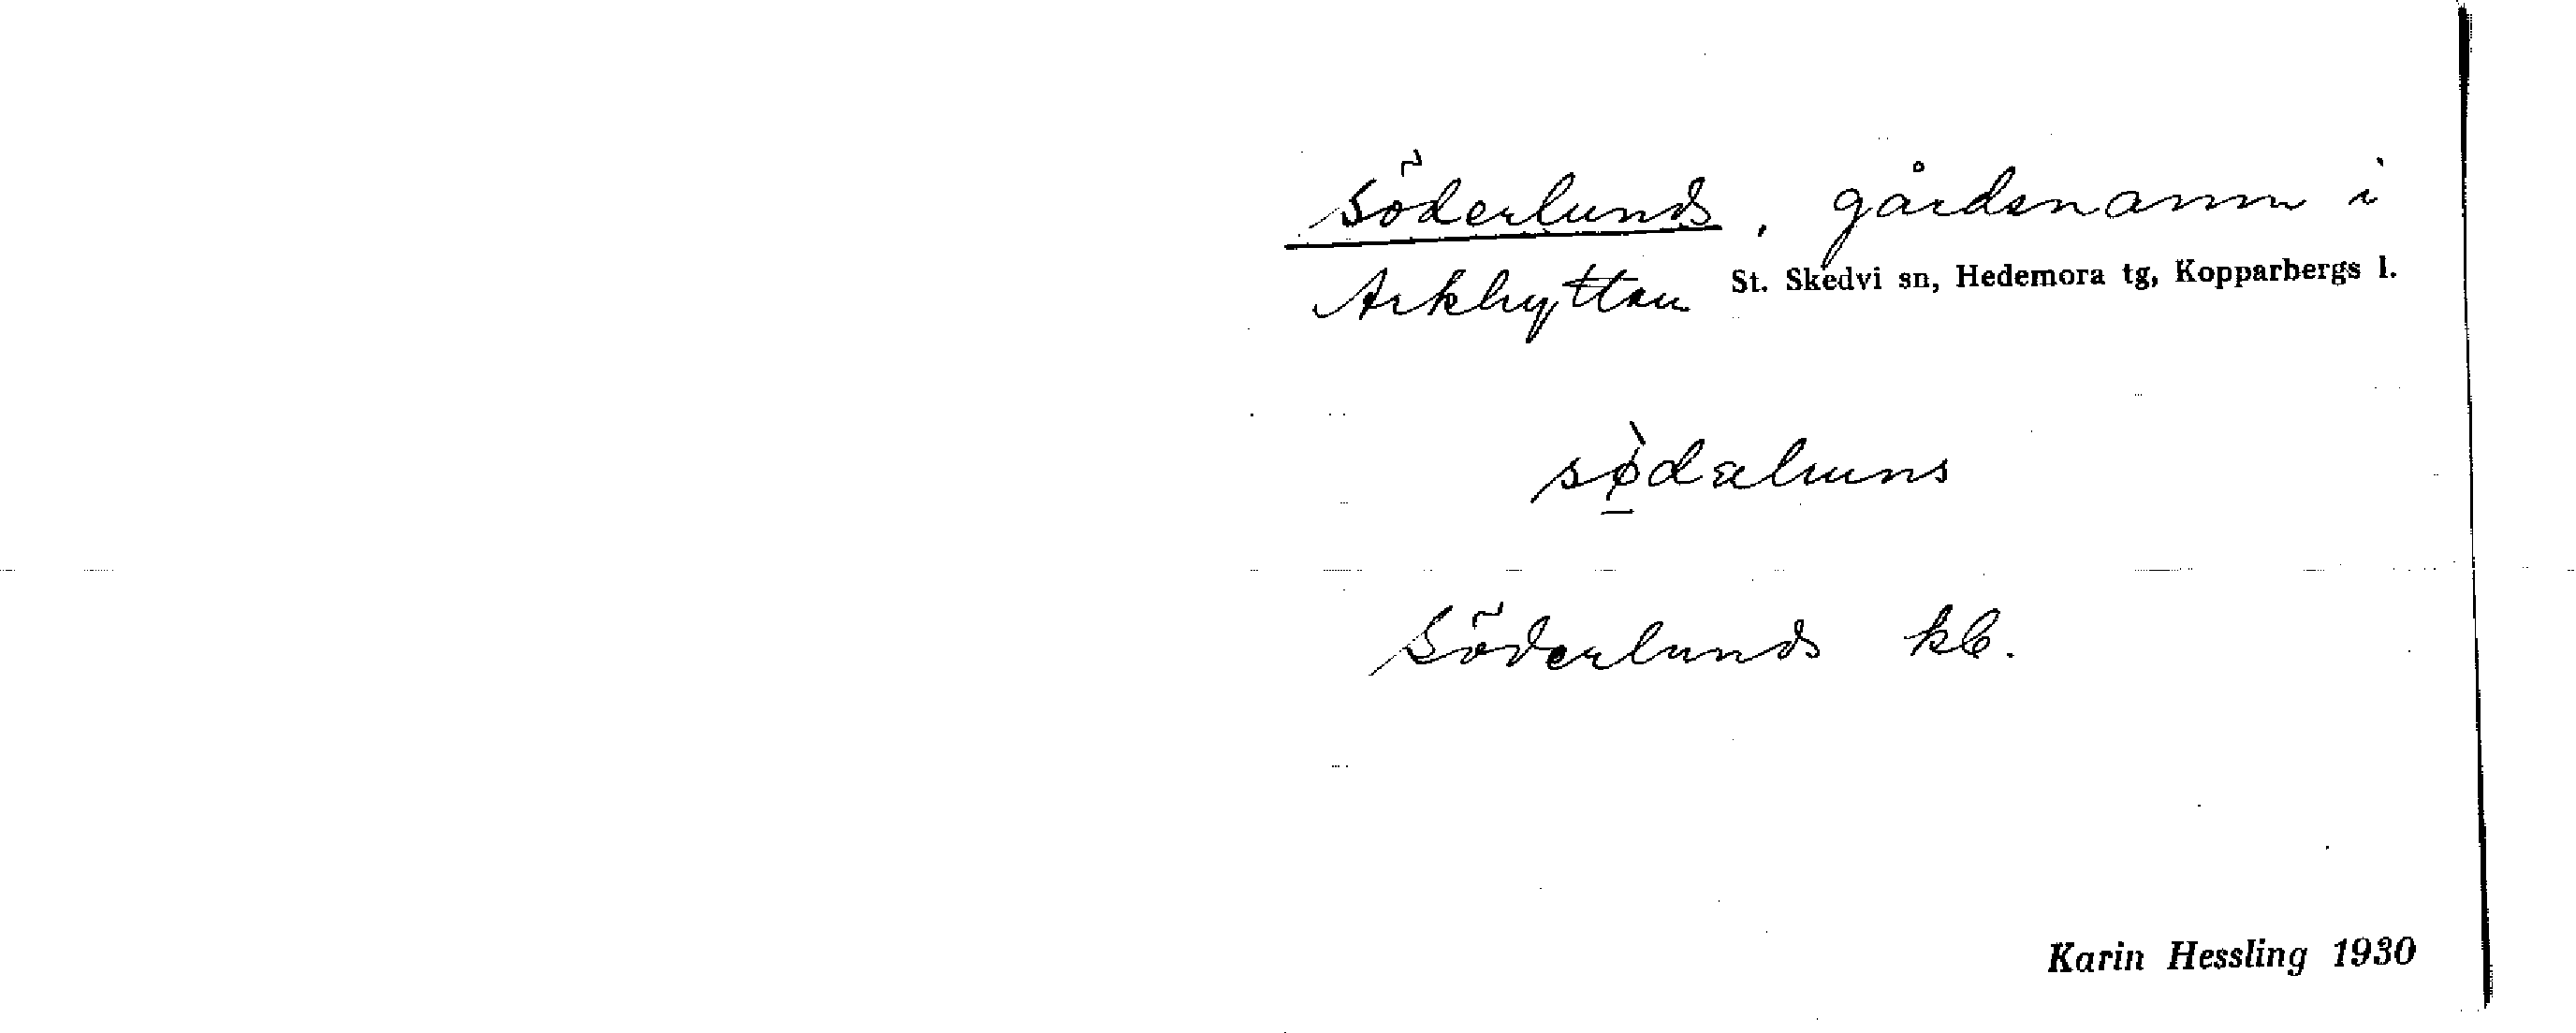 Söderlunds, gårdsnamn i
Arkhyttan St. Skedvi sn, Hedemora tg, Kopparbergs l.
sø̀dæluns
Söderlunds kb.
Karin Hessling 1930